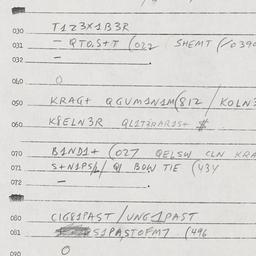 030 T1Z3X1B3R
031 - QTO.S+T (022 SHEMT
032 -
040 O
050 KRAG+ QGUM1N1M(812 / KOLN3
060 K8ELN3R
070 B1ND1+ (027 QELSW CLN KRA
071 S+N1PS/ BOW TIE (43Y
072 -
080 CIGG1PAST/UNG1PAST
081 S1PASTOFM7 (496
090 O